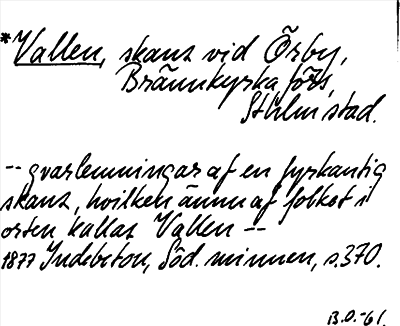 *Vallen, skans vid Örby,
Brännkyrka förs,
Sthlm stad.
-- qvarlemningar af en fyrkantig
skans, hvilken ännu af folket i
orten kallas Vallen --
1877 Indebetou, Söd. minnen, s. 370.
B.O.-61.